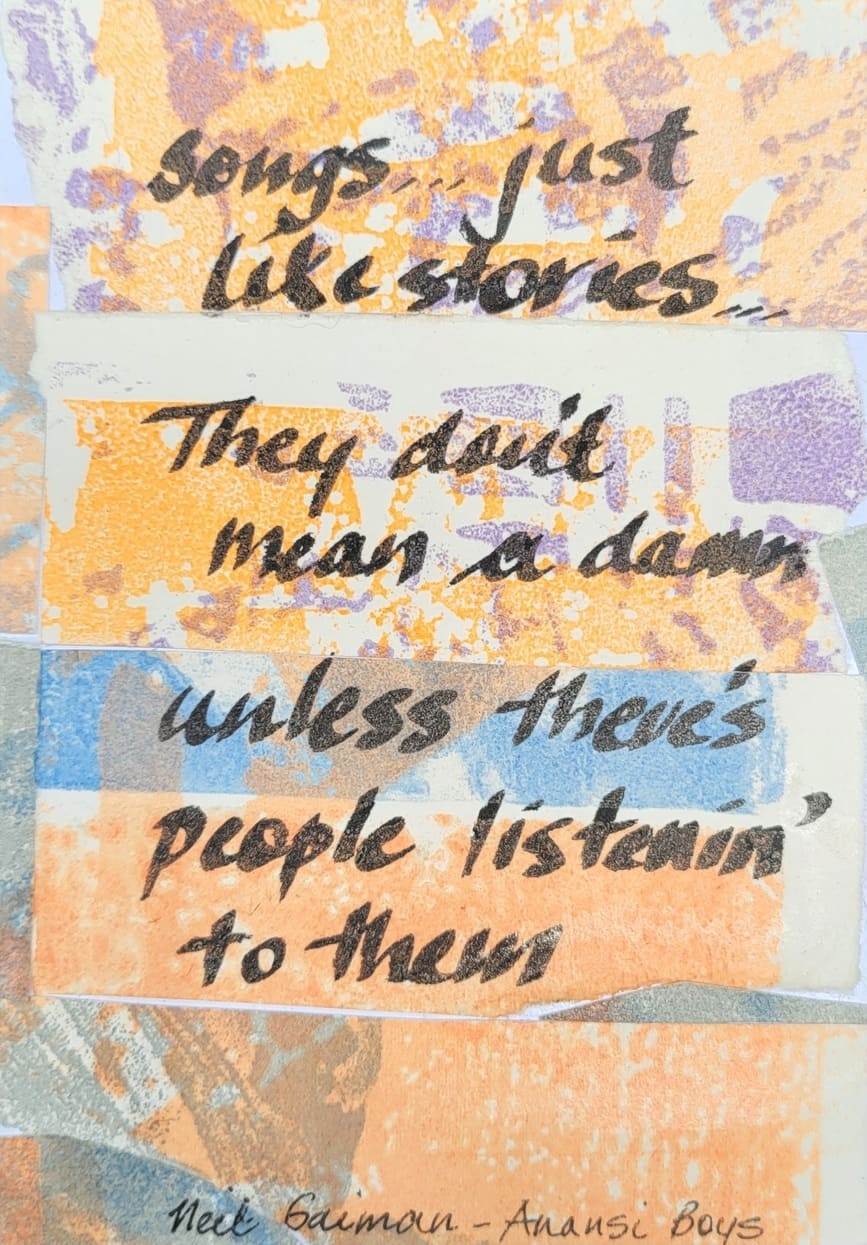 songs... just
like stories...
They don't
mean a damn
unless there's
people listenin'
to them
Neil Gaiman - Anansi Boys